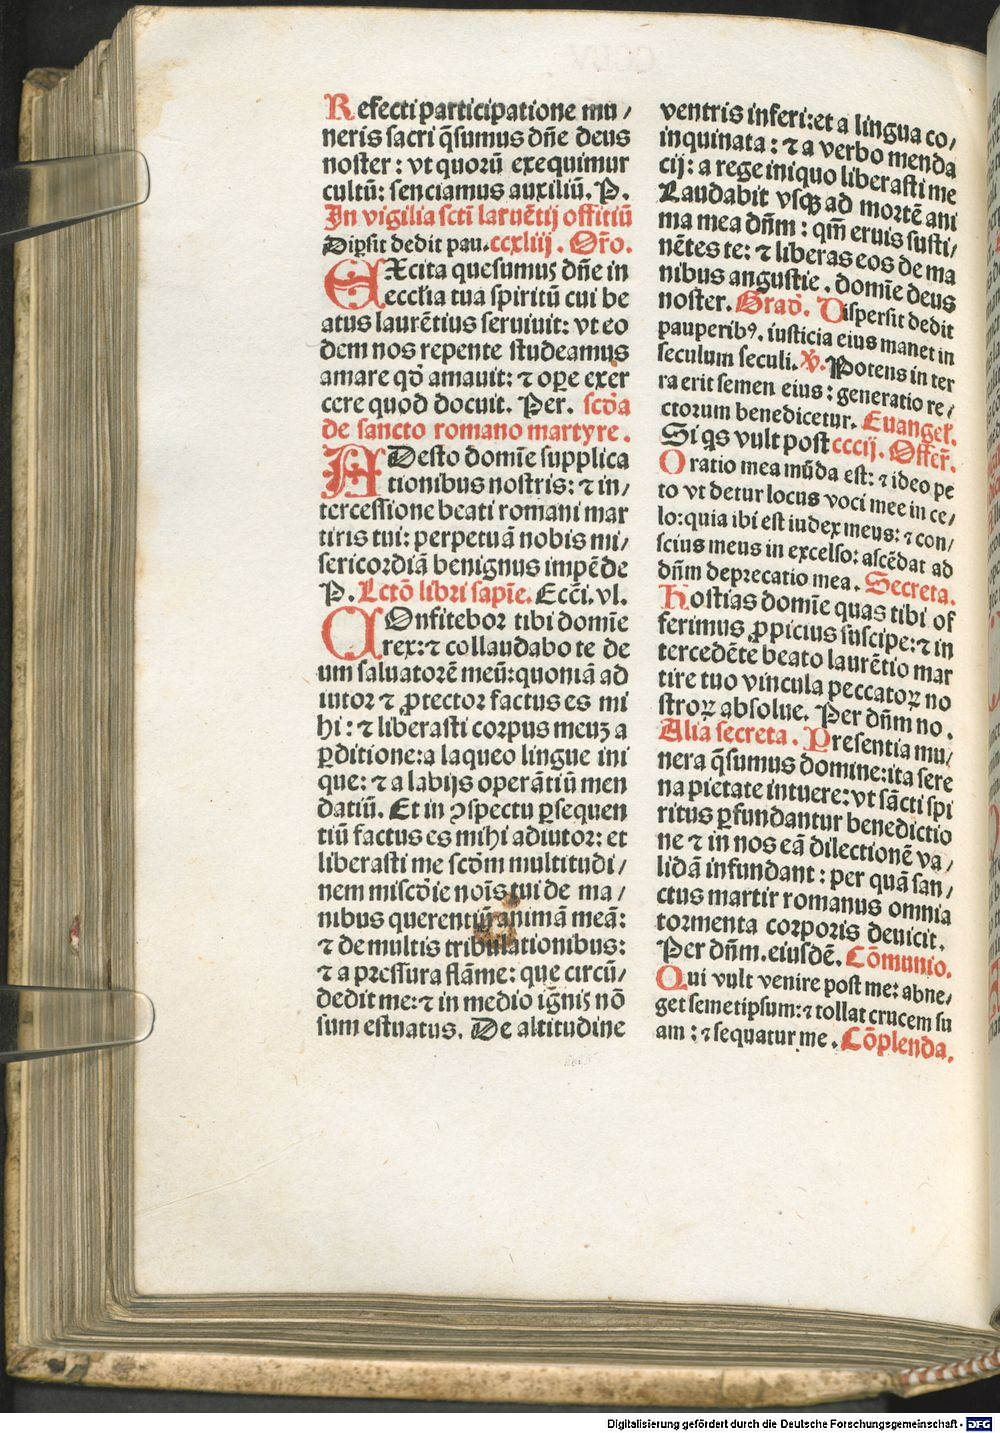 Refecti participatione mu/
neris sacri q̄sumus dn̄e deus
noster: vt quorū exequimur
cultū: senciamus auxiliū. P.
In vigilia scti laruētij offitiū
Dip̱sit dedit pau.ccxliij. Or̄o.
EXcita quesumus dn̄e in
ecclīa tua spiritū cui be
atus laurētius seruiuit: vt eo
dem nos repente studeamus
amare qd̄ amauit: ⁊ oꝑe exer
cere quod docuit. Per. scd̄a
de sancto romano martyre.
ADesto domīe supplica
tionibus nostris: ⁊ in/
tercessione beati romani mar
tiris tui: perpetuā nobis mi/
sericordiā benignus impēde
P. Lctō libri sapīe. Eccī. vl.
COnfitebor tibi domīe
rex: ⁊ collaudabo te de
um saluatorē meū: quoniā ad
iutor ⁊ ꝓtector factus es mi
hi: ⁊ liberasti corpus meuꝫ a
ꝑditione: a laqueo lingue ini
que: ⁊ a labijs operātiū men
datiū. Et in ꝯspectu ꝑsequen
tiū factus es mihi adiutor: et
liberasti me scd̄m multitudi/
nem miscd̄ie noīs tui de ma/
nibus querentiū animā meā:
⁊ de multis tribulationibus:
⁊ a pressura flāme: que circū/
dedit me: ⁊ in medio ignis nō
sum estuatus. De altitudine
ventris inferi: et a lingua co/
inquinata: ⁊ a verbo menda
cij: a rege iniquo liberasti me
Laudabit vsqꝫ ad mortē ani
ma mea dn̄m: qm̄ eruis susti/
nētes te: ⁊ liberas eos de ma
nibus angustie. domīe deus
noster. Grad̄. Dispersit dedit
pauperibꝰ. iusticia eius manet in
seculum seculi. ℣. Potens in ter
ra erit semen eius: generatio re/
ctorum benedicetur. Euangeł.
Si qs vult post cccij. Offer̄.
Oratio mea mūda est: ⁊ ideo pe
to vt detur locus voci mee in ce/
lo: quia ibi est iudex meus: ⁊ con/
scius meus in excelso: ascēdat ad
dn̄m deprecatio mea. Secreta.
Hostias domīe quas tibi of
ferimus ꝓpicius suscipe: ⁊ in
tercedēte beato laurētio mar
tire tuo vincula peccatoꝝ no
stroꝝ absolue. Per dn̄m no.
Alia secreta. Presentia mu/
nera q̄sumus domine: ita sere
na pietate intuere: vt sācti spi
ritus ꝑfundantur benedictio
ne ⁊ in nos eā dilectionē va/
lidā infundant: per quā san/
ctus martir romanus omnia
tormenta corporis deuicit.
Per dn̄m. eiusdē. Cōmunio.
Qui vult venire post me: abne/
get semetipsum: ⁊ tollat crucem su
am: ⁊ sequatur me. Cōplenda.
Digitalisierung gefördert durch die Deutsche Forschungsgemeinschaft - DFG